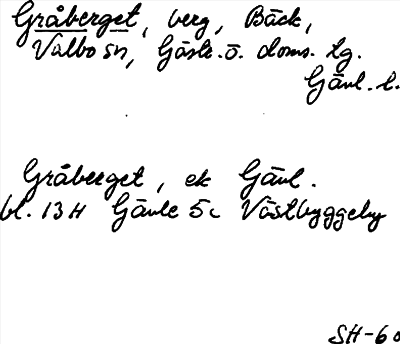 Gråberget, berg, Bäck,
Valbo sn, Gästr. ö. doms. lg.
Gävl. l.
Gråberget, ek Gävl.
bl. 13H Gävle 5c Västbyggeby
SH-60